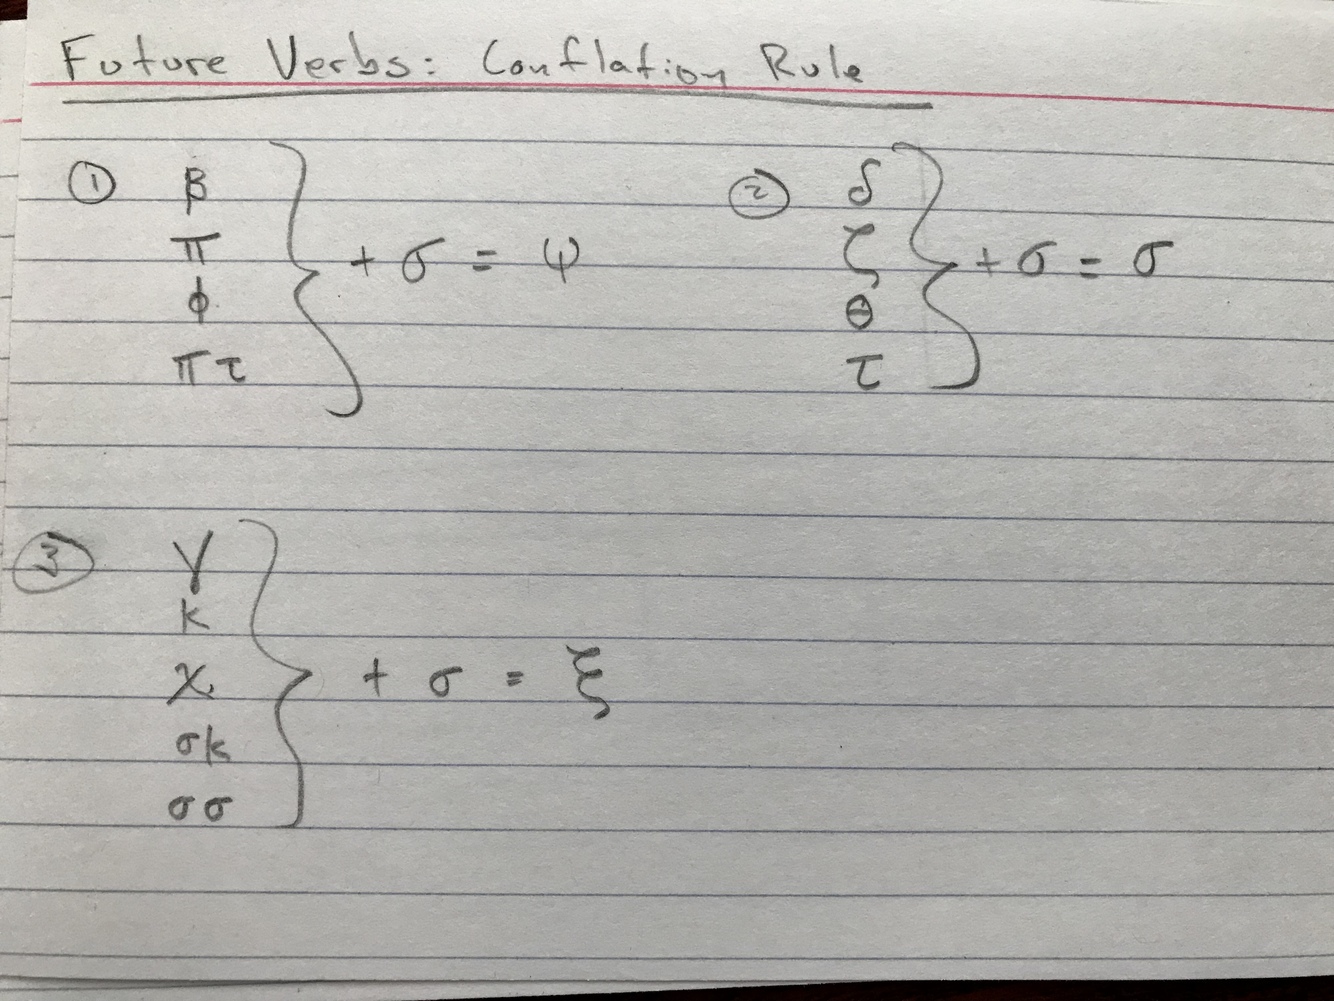 Future Verbs: Conflation Rule
① β
π
φ
πτ
} + σ = ψ
② δ
ζ
θ
τ
} + σ = σ
③ γ
κ
χ
σκ
σσ
} + σ = ξ